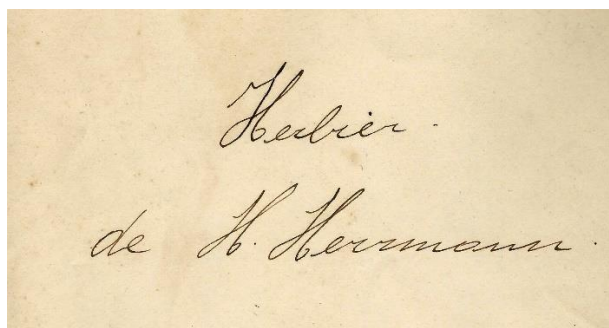 Herbier.
de H. Herrmann.